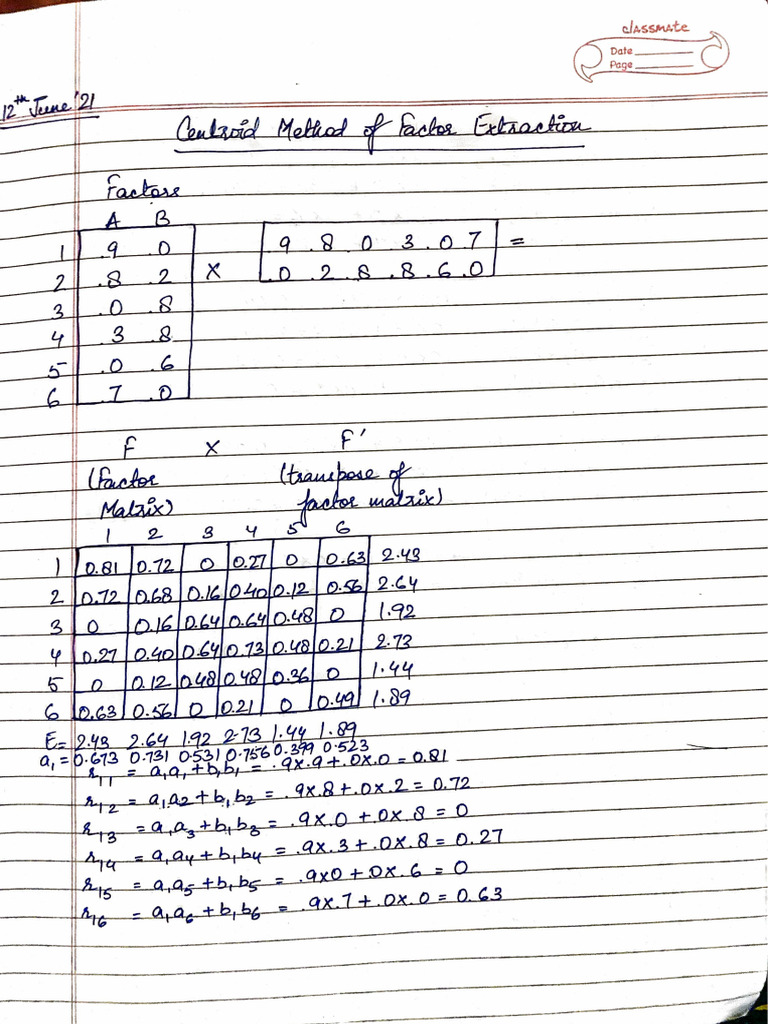 classmate
Date
Page
12th June '21
Centroid Method of Factor Extraction
Factors
A B
1 .9 .0
2 .8 .2
3 .0 .8
4 .3 .8
5 .0 .6
6 .7 .0
X
.9 .8 .0 .3 .0 .7 =
.0 .2 .8 .8 .6 .0
F X F'
(Factor Matrix) (transpose of factor matrix)
1 2 3 4 5 6
1 0.81 0.72 0 0.27 0 0.63 2.43
2 0.72 0.68 0.16 0.40 0.12 0.56 2.64
3 0 0.16 0.64 0.64 0.48 0 1.92
4 0.27 0.40 0.64 0.73 0.48 0.21 2.73
5 0 0.12 0.48 0.48 0.36 0 1.44
6 0.63 0.56 0 0.21 0 0.49 1.89
E= 2.43 2.64 1.92 2.73 1.44 1.89
a₁ = 0.673 0.731 0.531 0.756 0.399 0.523
r₁₁ = a₁a₁ + b₁b₁ = .9x.9 + .0x.0 = 0.81
r₁₂ = a₁a₂ + b₁b₂ = .9x.8 + .0x.2 = 0.72
r₁₃ = a₁a₃ + b₁b₃ = .9x.0 + .0x.8 = 0
r₁₄ = a₁a₄ + b₁b₄ = .9x.3 + .0x.8 = 0.27
r₁₅ = a₁a₅ + b₁b₅ = .9x0 + .0x.6 = 0
r₁₆ = a₁a₆ + b₁b₆ = .9x.7 + .0x.0 = 0.63